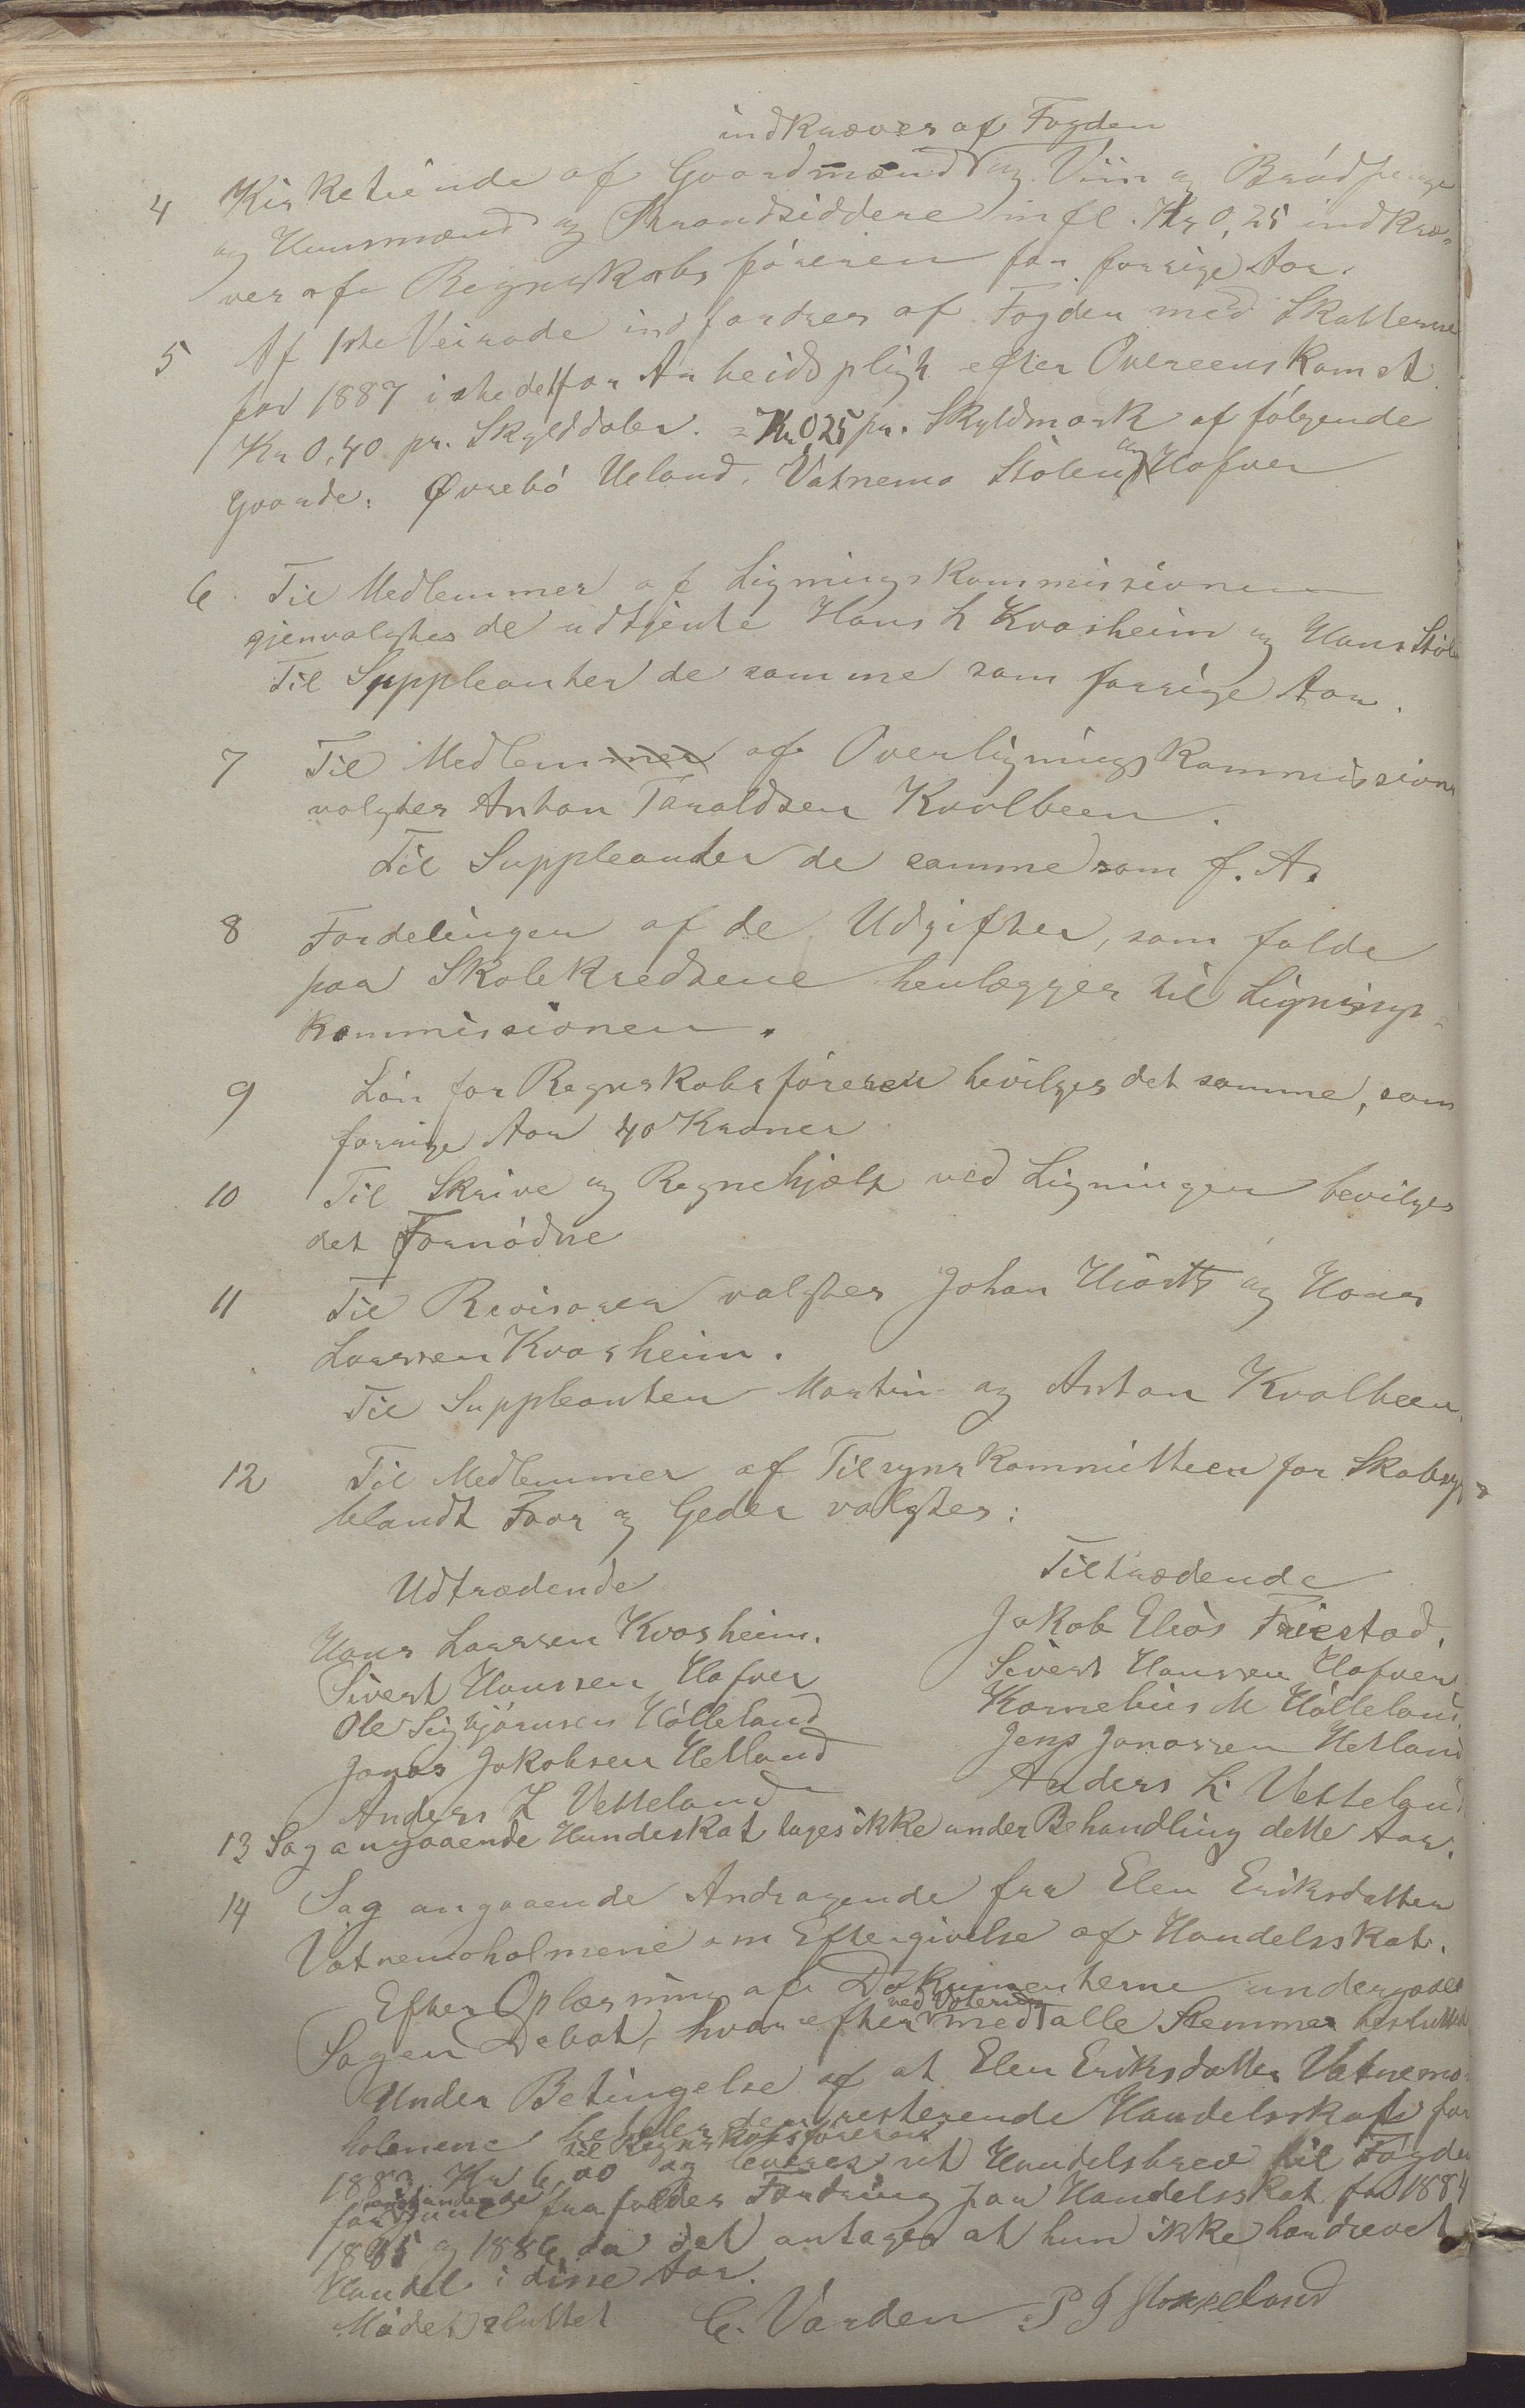 indkræves af Fogden
4 Kirketiende af Gaardmænd og Viin og Brødpenge
og Huusmænd og Strandsiddere infl. Kr 0,25 indkræ-
ves af Regnskabsføreren for forrige Aar.
5 Af 1ste Veirode indfordres af Fogden med Skatterne
for 1887 istedetfor Arbeidspligt efter Overeenskomst
Kr 0,40 pr. Skylddaler. = Kr 0,25 pr. Skyldmark af følgende
Gaarde: Øvrebø Ueland, Vatnemo Stølen og Hafver
6 Til Medlemmer af Ligningskommissionen
gjenvalgtes de udtjente Hans L Kvasheim og Hans Stølen
Til Suppleanter de samme som forrige Aar.
7 Til Medlemmer af Overligningskommissionen
valgtes Anton Taraldsen Kvalbeen.
Til Suppleanter de samme som f. A.
8 Fordelingen af de Udgifter, som falde
paa Skolekredsene henlægges til Lignings-
kommissionen.
9 Løn for Regnskabsføreren bevilges det samme, som
forrige Aar 40 Kroner
10 Til Skrive og Regnehjælp ved Ligningen bevilges
det Fornødne
11 Til Revisorer valgtes Johan Hiorth og Hans
Larssen Kvasheim.
Til Suppleanter Martin og Anton Kvalbeen.
12 Til Medlemmer af Tilsynskommitteen for Skabsyge
blandt Faar og Geder valgtes:
Udtrædende
Tiltrædende
Hans Larssen Kvasheim.
Jakob Elias Friestad.
Sivert Hanssen Hafver
Sivert Hanssen Hafver
Ole Sigbjørnsen Hølleland
Kornelius M Hølleland
Jonas Jakobsen Hetland
Jens Jonassen Hetland
Anders L Vetteland
Anders L Vetteland
13 Sag angaaende Hundeskat tages ikke under Behandling dette Aar.
14 Sag angaaende Andragende fra Elen Eriksdatter
Vatnemoholmene om Eftergivelse af Handelsskat.
Efter Oplæsning af Dokumenterne undergodes
ved Votering
Sagen Debat, hvorefter med alle Stemmer besluttedes
Under Betingelse af at Elen Eriksdatter Vatnemo-
holmene betaler den resterende Handelsskat for
til Regnskabsføreren
1883 Kr 6,00 og leverer sit Handelsbrev til Fogden
for Juni frafaldes Fordring paa Handelsskat for 1884
1885 og 1886, da det antages at hun ikke har drevet
Handel i disse Aar.
Mødet sluttet C. Varden P J